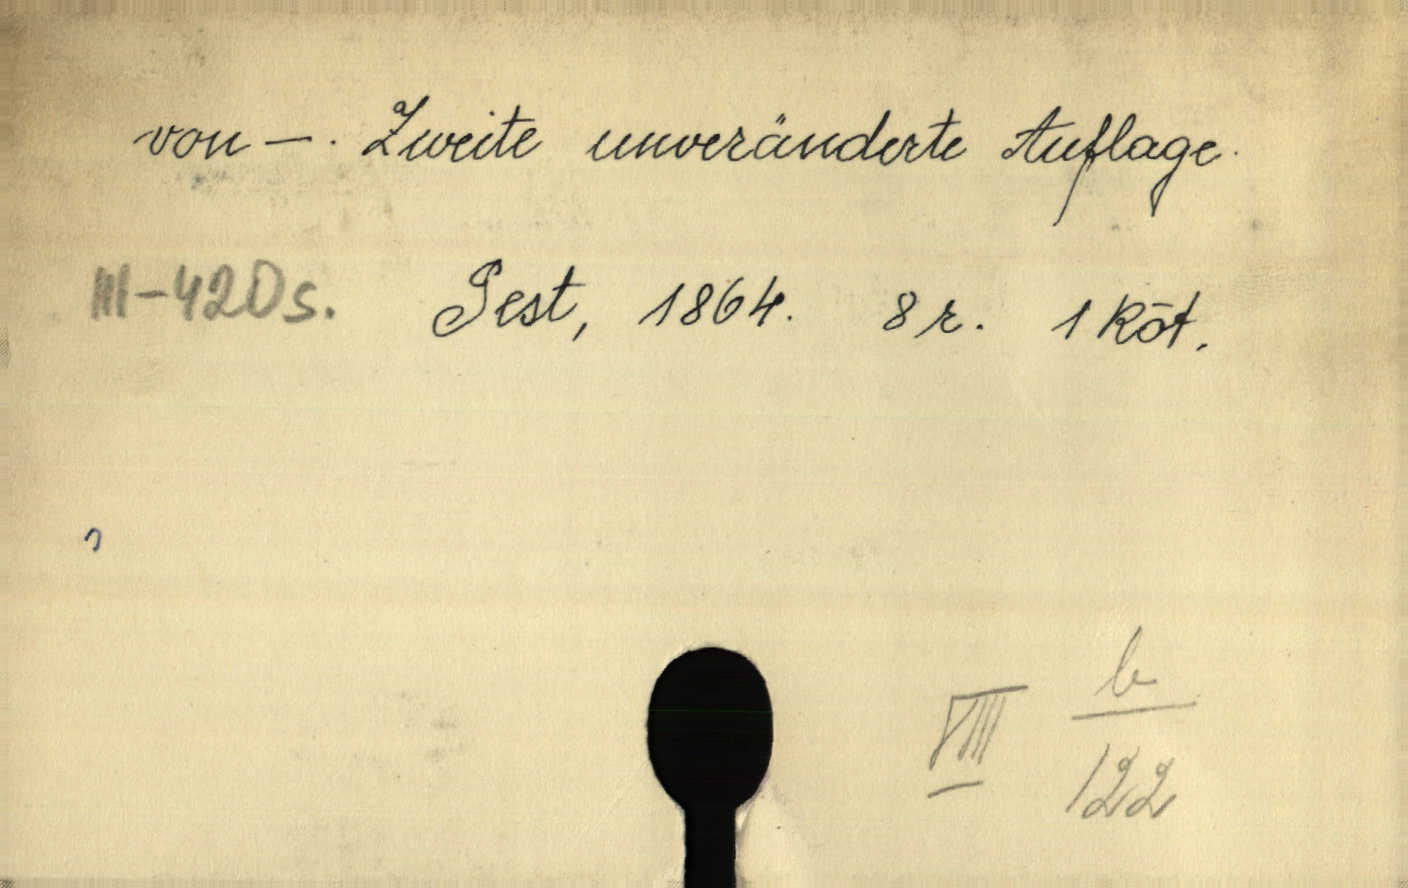 von —. Zweite unveränderte Auflage.
III-420s. Pest, 1864. 8 r. 1 Köt.
VIII b
122